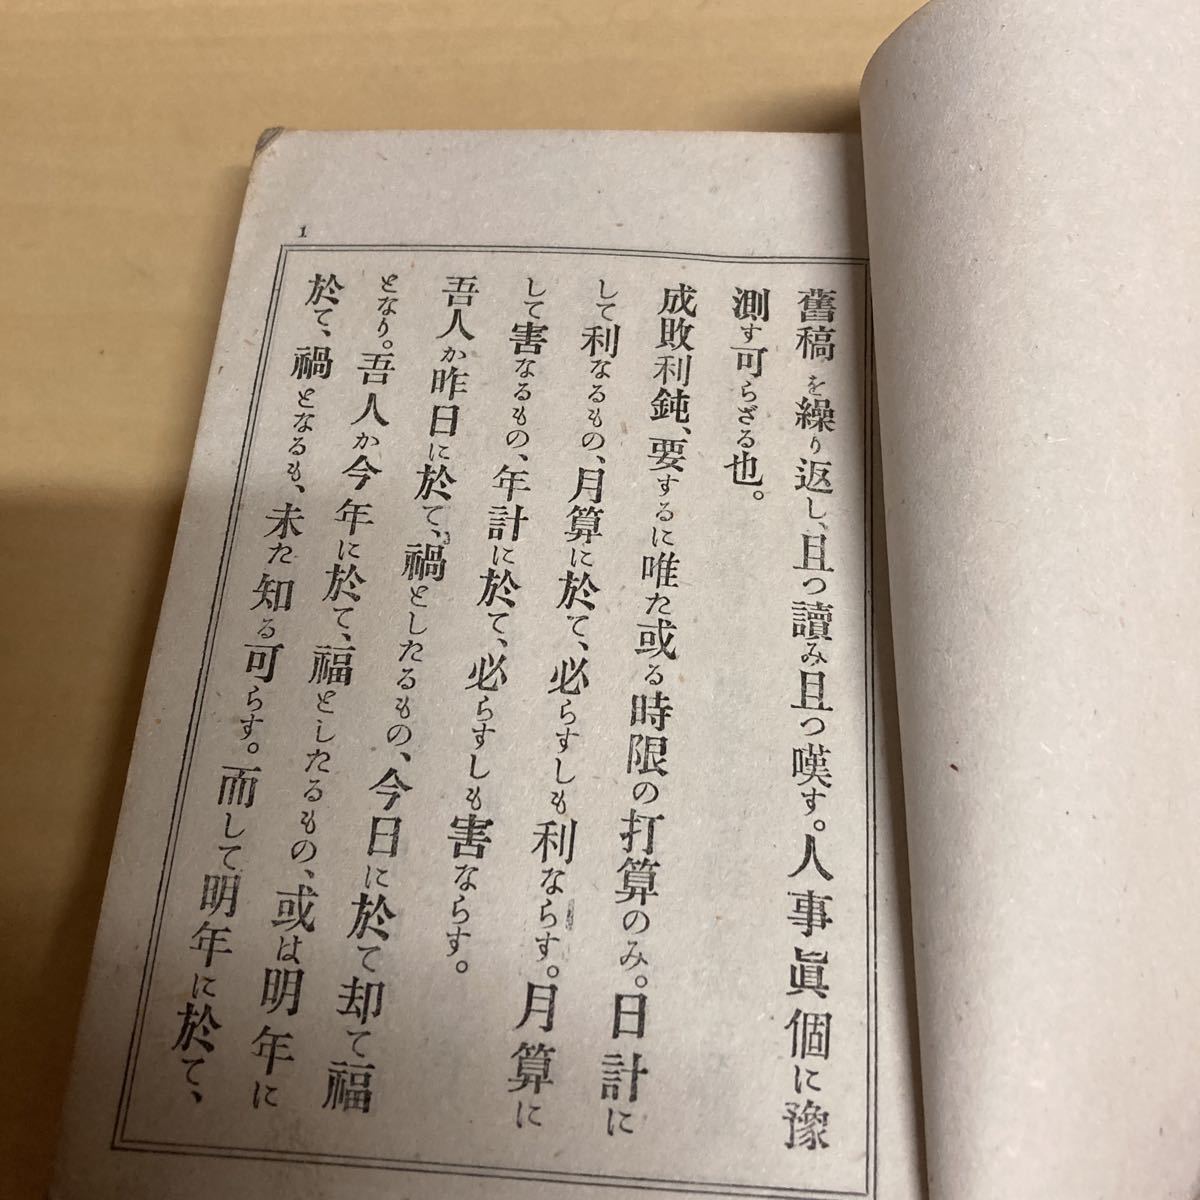 1
舊稿を繰り返し、且つ讀み且つ嘆す。人事眞個に豫
測す可らざる也。
成敗利鈍、要するに唯た或る時限の打算のみ。日計に
して利なるもの、月算に於て、必らすしも利ならす。月算に
して害なるもの、年計に於て、必らすしも害ならす。
吾人か昨日に於て、禍としたるもの、今日に於て却て福
となり。吾人か今年に於て、福としたるもの、或は明年に
於て、禍となるも、未た知る可らす。而して明年に於て、